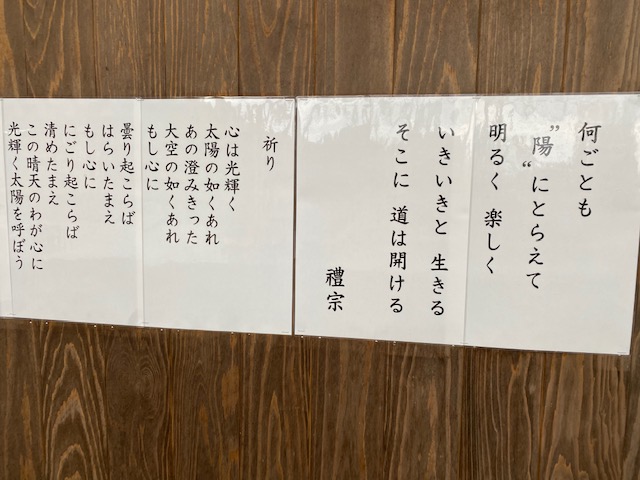 何ごとも
”陽“にとらえて
明るく 楽しく
いきいきと 生きる
そこに 道は開ける
禮宗
祈り
心は光輝く
太陽の如くあれ
あの澄みきった
大空の如くあれ
もし心に
曇り起こらば
はらいたまえ
もし心に
にごり起こらば
清めたまえ
この晴天のわが心に
光輝く太陽を呼ぼう